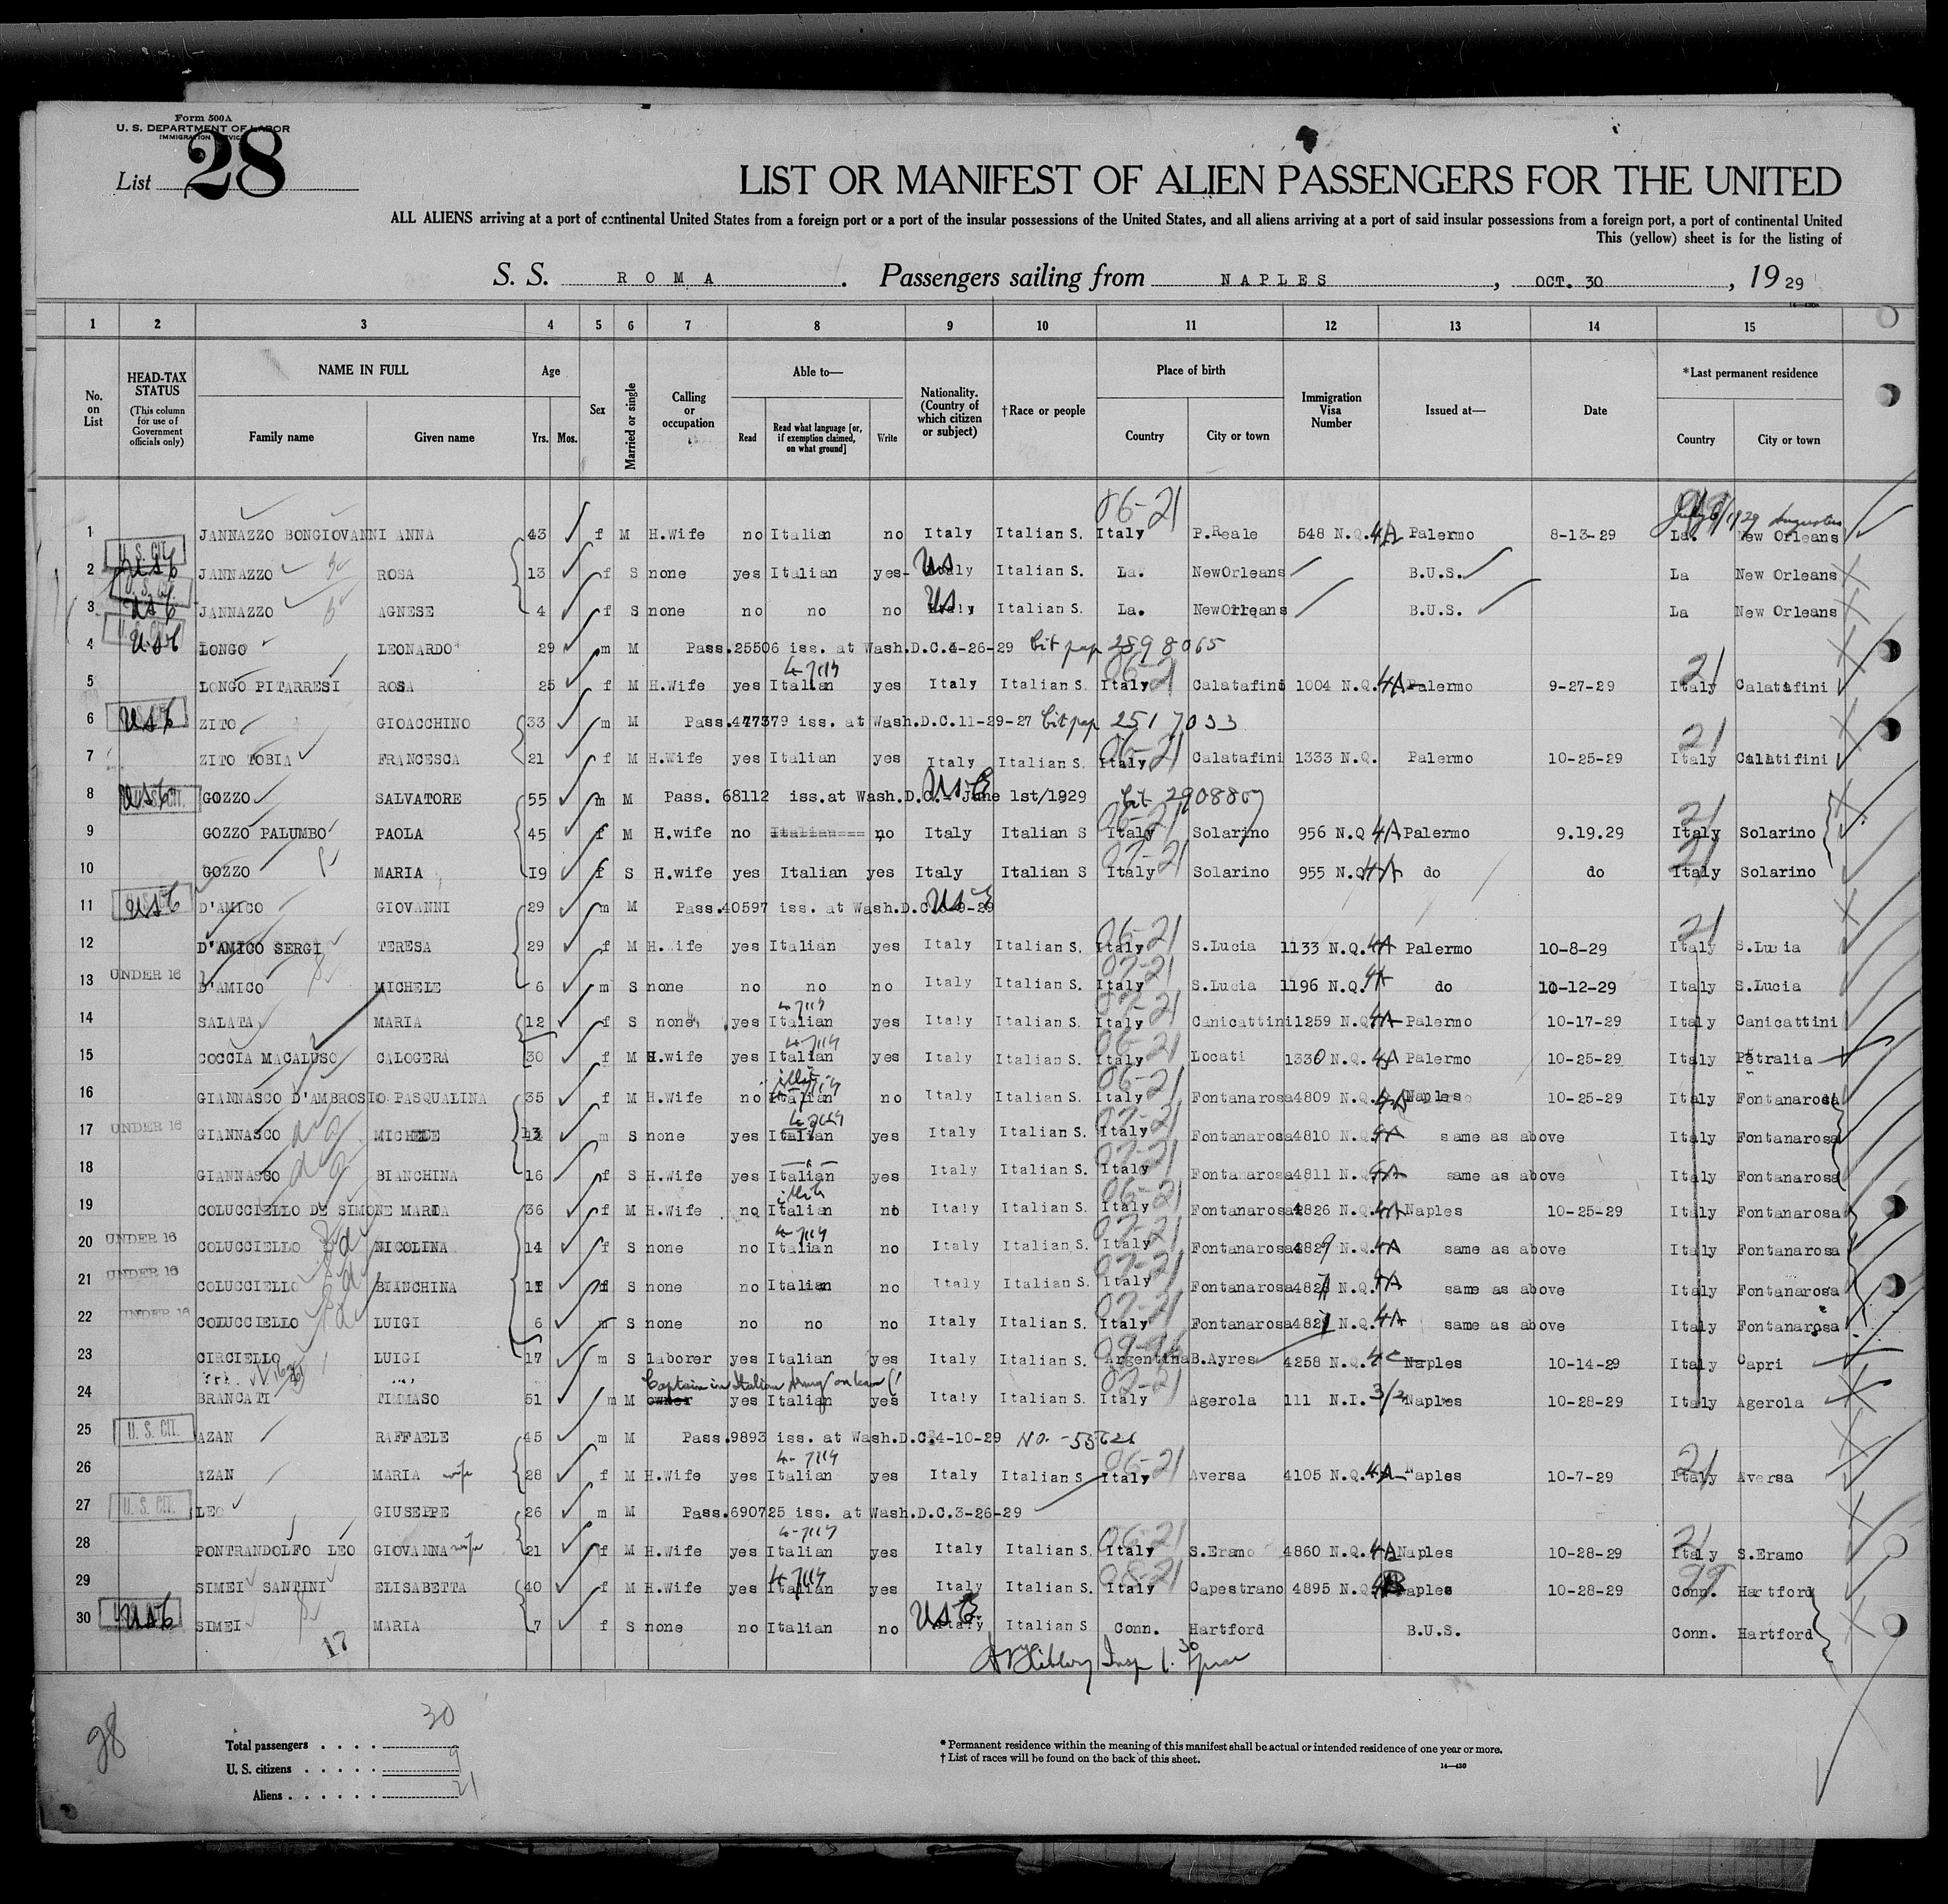 Form 500A
U. S. DEPARTMENT OF LABOR
IMMIGRATION SERVICE
List 28
LIST OR MANIFEST OF ALIEN PASSENGERS FOR THE UNITED
ALL ALIENS arriving at a port of continental United States from a foreign port or a port of the insular possessions of the United States, and all aliens arriving at a port of said insular possessions from a foreign port, a port of continental United
This (yellow) sheet is for the listing of
S. S. ROMA. Passengers sailing from NAPLES, OCT. 30, 19 29
1 2 3 4 5 6 7 8 9 10 11 12 13 14 15
No. on List
HEAD-TAX STATUS (This column for use of Government officials only)
NAME IN FULL Family name Given name
Age Yrs. Mos.
Sex
Married or single
Calling or occupation
Able to— Read Read what language [or, if exemption claimed, on what ground] Write
Nationality. (Country of which citizen or subject)
†Race or people
Place of birth Country City or town
Immigration Visa Number
Issued at—
Date
*Last permanent residence Country City or town
1 JANNAZZO BONGIOVANNI ANNA 43 f M H.Wife no Italian no Italy Italian S. Italy 06-21 P.Reale 548 N.Q. 4A Palermo 8-13-29 La. New Orleans
2 U. S. CIT. JANNAZZO ROSA 13 f S none yes Italian yes- Italy US Italian S. La. NewOrleans B.U.S. La New Orleans
3 U. S. CIT. JANNAZZO AGNESE 4 f S none no no no Italy US Italian S. La. NewOrleans B.U.S. La New Orleans
4 LONGO LEONARDO 29 m M Pass.25506 iss. at Wash.D.C.4-26-29 2898065
5 LONGO PITARRESI ROSA 25 f M H.Wife yes Italian yes Italy Italian S. Italy 06-21 Calatafini 1004 N.Q. 4A Palermo 9-27-29 Italy 21 Calatafini
6 ZITO GIOACCHINO 33 m M Pass.447379 iss. at Wash.D.C.11-29-27 2517033
7 ZITO TOBIA FRANCESCA 21 f M H.Wife yes Italian yes Italy Italian S. Italy 06-21 Calatafini 1333 N.Q. Palermo 10-25-29 Italy 21 Calatifini
8 U. S. CIT. GOZZO SALVATORE 55 m M Pass. 68112 iss.at Wash.D.C.- June 1st/1929
9 GOZZO PALUMBO PAOLA 45 f M H.wife no Italian no Italy Italian S Italy 06-21 Solarino 956 N.Q 4A Palermo 9.19.29 Italy 21 Solarino
10 GOZZO MARIA I9 f S H.wife yes Italian yes Italy Italian S Italy 07-21 Solarino 955 N.Q 4A do do Italy 21 Solarino
11 D'AMICO GIOVANNI 29 m M Pass.40597 iss. at Wash.D.C.
12 D'AMICO SERGI TERESA 29 f M H.Wife yes Italian yes Italy Italian S. Italy 06-21 S.Lucia 1133 N.Q. 4A Palermo 10-8-29 Italy 21 S.Lucia
13 UNDER 16 D'AMICO MICHELE 6 m S none no no no Italy Italian S. Italy 07-21 S.Lucia 1196 N.Q. 4A do 10-12-29 Italy S.Lucia
14 SALATA MARIA 12 f S none yes Italian yes Italy Italian S. Italy 07-21 Canicattini 1259 N.Q. 4A Palermo 10-17-29 Italy Canicattini
15 COCCIA MACALUSO CALOGERA 30 f M H.wife yes Italian yes Italy Italian S. Italy 06-21 Locati 1330 N.Q. 4A Palermo 10-25-29 Italy Petralia
16 GIANNASCO D'AMBROSIO PASQUALINA 35 f M H.Wife no Italian no Italy Italian S. Italy 06-21 Fontanarosa 4809 N.Q. 4A Naples 10-25-29 Italy Fontanarosa
17 UNDER 16 GIANNASCO MICHELE m S none yes Italian yes Italy Italian S. Italy 07-21 Fontanarosa 4810 N.Q. 4A same as above Italy Fontanarosa
18 GIANNASCO BIANCHINA 16 f S H.Wife yes Italian yes Italy Italian S. Italy 07-21 Fontanarosa 4811 N.Q. 4A same as above Italy Fontanarosa
19 COLUCCIELLO DE SIMONE MARIA 36 f M H.Wife no Italian no Italy Italian S. Italy 06-21 Fontanarosa 4826 N.Q. 4A Naples 10-25-29 Italy Fontanarosa
20 UNDER 16 COLUCCIELLO NICOLINA 14 f S none no Italian no Italy Italian S. Italy 07-21 Fontanarosa 4829 N.Q. 4A same as above Italy Fontanarosa
21 UNDER 16 COLUCCIELLO BIANCHINA 11 f S none no Italian no Italy Italian S. Italy 07-21 Fontanarosa N.Q. 4A same as above Italy Fontanarosa
22 UNDER 16 COLUCCIELLO LUIGI 6 m S none no no no Italy Italian S. Italy 07-21 Fontanarosa N.Q. 4A same as above Italy Fontanarosa
23 CIRCIELLO LUIGI 17 m S laborer yes Italian yes Italy Italian S. Argentina B.Ayres 4258 N.Q. 4C Naples 10-14-29 Italy Capri
24 BRANCATI TIMMASO 51 m M owner Captain in Italian Army yes Italian yes Italy Italian S. Italy 07-21 Agerola 111 N.I. 3/2 Naples 10-28-29 Italy Agerola
25 U. S. CIT. AZAN RAFFAELE 45 m M Pass.9893 iss. at Wash.D.C.4-10-29
26 AZAN MARIA wife 28 f M H.Wife yes Italian yes Italy Italian S Italy 06-21 Aversa 4105 N.Q. 4A Naples 10-7-29 Italy 21 Aversa
27 U. S. CIT. LEO GIUSEPPE 26 m M Pass.690725 iss. at Wash.D.C.3-26-29
28 PONTRANDOLFO LEO GIOVANNA wife 21 f M H.Wife yes Italian yes Italy Italian S. Italy 06-21 S.Eramo 4860 N.Q. 4A Naples 10-28-29 Italy 21 S.Eramo
29 SIMEI SANTINI ELISABETTA 40 f M H.Wife yes Italian yes Italy Italian S. Italy Capestrano 4895 N.Q. Naples 10-28-29 Conn. Hartford
30 SIMEI MARIA 7 f S none no Italian no Italy Italian S Conn. Hartford B.U.S. Conn. Hartford
17
28
Total passengers . . . . 30
U. S. citizens . . . . . 9
Aliens . . . . . . 21
* Permanent residence within the meaning of this manifest shall be actual or intended residence of one year or more.
† List of races will be found on the back of this sheet.
14—430